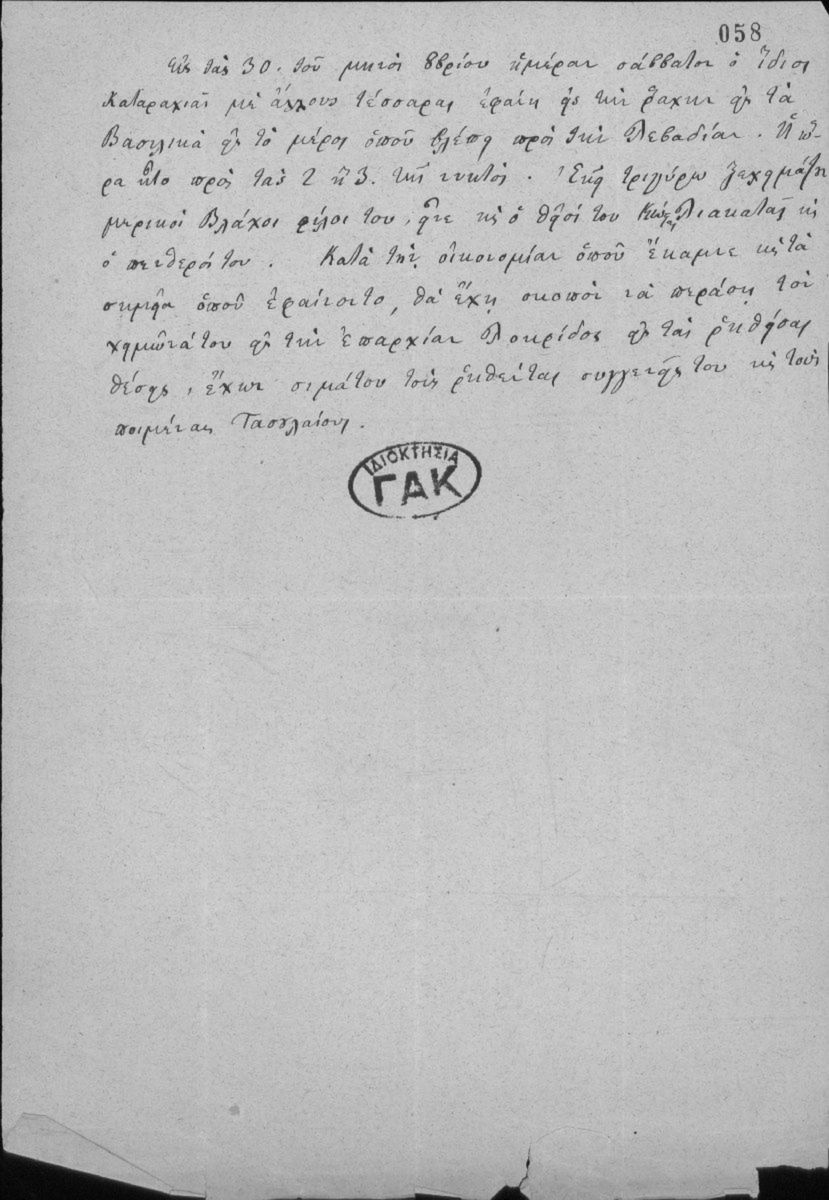 058
Εἰς τὰς 30. τοῦ μηνὸς 8βρίου ἡμέραν σάββατον ὁ ἴδιος
Καταραχιᾶς μὲ ἄλλους τέσσαρας ἐφάνη εἰς τὴν ῥάχην εἰς τὰ
Βασιλικὰ εἰς τὸ μέρος ὁποῦ βλέπει πρὸς τὴν Λεβαδίαν. Ἡ ὥ-
ρα ἦτο πρὸς τὰς 2 ἢ 3. τῆς νυκτός. Ἐκεῖ τριγύρω ξεχειμάζουν
μερικοὶ Βλάχοι φίλοι του, εἶνε κὶ ὁ θεῖός του Λιακατᾶς κὶ
ὁ πενθερός του. Κατὰ τὴν οἰκονομίαν ὁποῦ ἔκαμνε κὶ τὰ
σημεῖα ὁποῦ ἐφαίνοντο, θὰ ἔχῃ σκοπὸν νὰ περάσῃ τὸν
χειμῶνά του εἰς τὴν ἐπαρχίαν Λοκρίδος εἰς τὰς ῥηθείσας
θέσεις, ἔχων σιμά του τοὺς ῥηθέντας συγγενεῖς του κὶ τοὺς
ποιμένας Τασουλαίους.
ΙΔΙΟΚΤΗΣΙΑ
ΓΑΚ